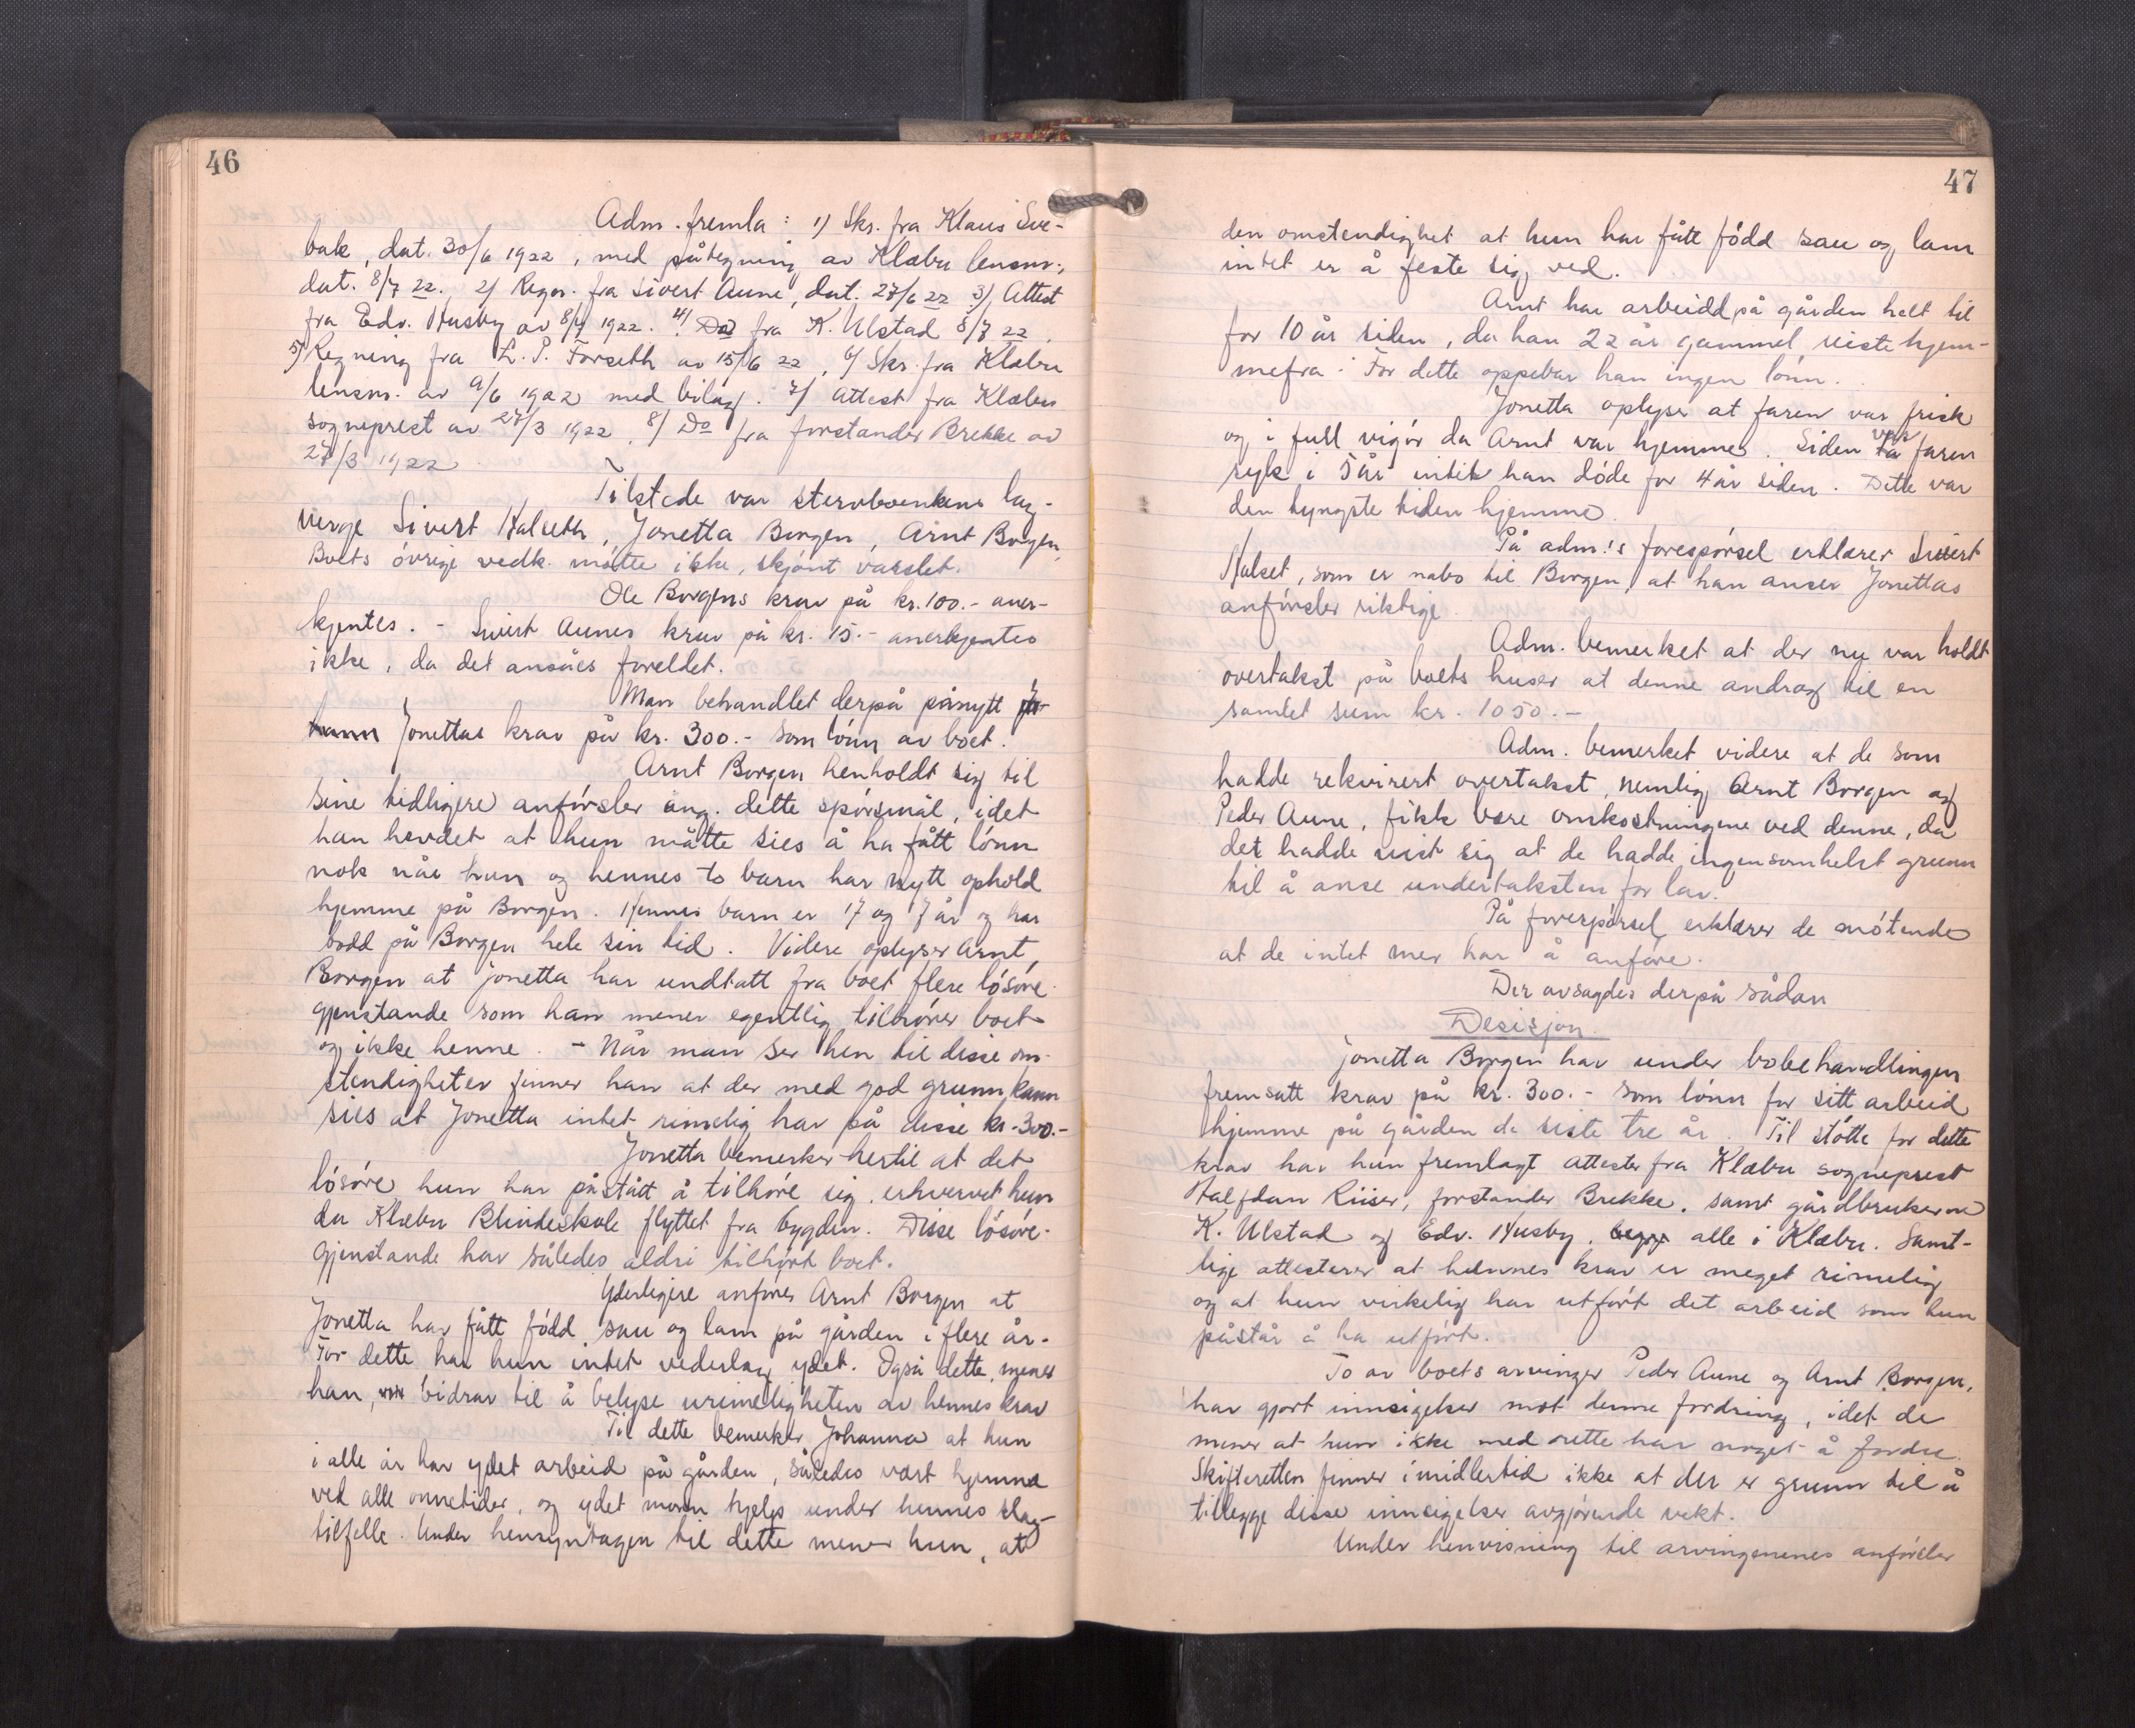 46
Adm. fremla: 1) Skr. fra Klaus Sve-
bak, dat. 30/6 1922, med påtegning av Klæbu lensm.,
dat. 8/7 22. 2) Regn. fra Sivert Aune, dat. 27/6 22 3) Attest
fra Edv. Husby av 8/7 1922. 4) Do fra K. Ulstad 8/7 22,
5) Regning fra L. P. Forseth av 15/6 22, 6) Skr. fra Klæbu
lensm. av 9/6 1922 med bilag. 7) Attest fra Klæbu
sogneprest av 27/3 1922, 8) Do fra forstander Brekke av
27/3 1922
Tilstede var stervboenkens lag-
verge Sivert Halseth, Jonetta Borgen, Arnt Borgen.
Boets övrige vedk. mötte ikke, skjönt varslet.
Ole Borgens krav på kr. 100.- aner-
kjentes. - Sivert Aunes krav på kr. 15.- anerkjentes
ikke, da det ansåes foreldet.
Man behandlet derpå pånytt Jo-
hann Jonettas krav på kr. 300.- som lönn av boet.
Arnt Borgen henholdt sig til
sine tidligere anförsler ang. dette spörsmål, idet
han hevdet at hun måtte sies å ha fått lönn
nok når hun og hennes to barn har nytt ophold
hjemme på Borgen. Hennes barn er 17 og 7 år og har
bodd på Borgen hele sin tid. Videre oplyser Arnt
Borgen at Jonetta har undtatt fra boet flere lösöre-
gjenstande som han mener egentlig tilhörer boet
og ikke henne. - Når man ser hen til disse om-
stendigheter finner han at der med god grunn kann
sies at Jonetta intet rimelig har på disse kr. 300.-
Jonetta bemerker hertil at det
lösöre hun har påstått å tilhöre sig, erhvervet hun
da Klæbu Blindeskole flyttet fra bygden. Disse lösöre-
gjenstande har således aldri tilhört boet.
Yderligere anföres Arnt Borgen at
Jonetta har fått född sau og lam på gården i flere år.
For dette har hun intet vederlag ydet. Også dette, mener
han, bidrar til å belyse urimeligheten av hennes krav
Til dette bemerker Johanna at hun
i alle år har ydet arbeid på gården, således vært hjemme
ved alle onnetider, og ydet moren hjelp under hennes slag-
tilfelle. Under hensyntagen til dette mener hun, at
47
den omstendighet at hun har fått född sau og lam
intet er å feste sig ved.
Arnt har arbeidd på gården helt til
for 10 år siden, da han 22 år gammel reiste hjem-
mefra. For dette oppebar han ingen lönn.
Jonetta oplyser at faren var frisk
og i full vigör da Arnt var hjemme. Siden var faren
syk i 5 år inntil han döde for 4 år siden. Dette var
den tyngste tiden hjemme.
På adm.'s forespörsel erklærer Sivert
Halset, som er nabo til Borgen, at han anser Jonettas
anförsler riktige.
Adm. bemerket at der ny var holdt
overtakst på boets huser at denne androg til en
samlet sum kr. 1050.-
Adm. bemerket videre at de som
hadde rekvirert overtakst, nemlig Arnt Borgen og
Peder Aune, fikk bære omkostningene ved denne, da
det hadde vist sig at de hadde ingensomhelst grunn
til å anse undertaksten for lav.
På forespörsel erklærer de mötende
at de intet mer har å anföre.
Der avsagdes derpå sådan
Desisjon.
Jonetta Borgen har under bobehandlingen
fremsatt krav på kr. 300.- som lönn for sitt arbeid
hjemme på gården de siste tre år. Til stötte for dette
krav har hun fremlagt attester fra Klæbu sogneprest
Halfdan Riiser, forstander Brekke, samt gårdbrukerne
K. Ulstad og Edv. Husby, begge alle i Klæbu. Samt-
lige attesterer at hennes krav er meget rimelig
og at hun virkelig har utfört det arbeid som hun
påstår å ha utfört.
To av boets arvinger Peder Aune og Arnt Borgen,
har gjort innsigelser mot denne fordring, idet de
mener at hun ikke med rette har noget å fordre.
Skifteretten finner imidlertid ikke at der er grunn til å
tillegge disse innsigelser avgjörende vekt.
Under henvisning til arvingenenes anförsler